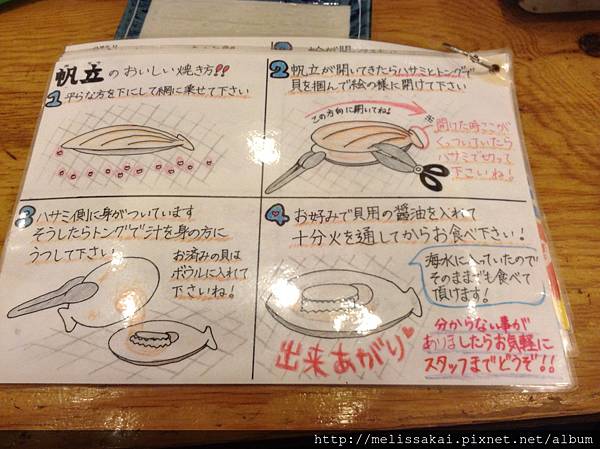 帆立のおいしい焼き方!!
1 平らな方を下にして網に乗せて下さい
2 帆立が開いてきたらハサミとトングで
貝を掴んで絵の様に開けて下さい
この方向に開いてね!
※
開けた時ここが
くっついていたら
ハサミで切って
下さいね!
3 ハサミ側に身がついています
そうしたらトングで汁を身の方に
うつして下さい!
お済みの貝は
ボウルに入れて
下さいね!
4 お好みで貝用の醤油を入れて
十分火を通してからお食べ下さい!
海水に入っていたので
そのままでも食べて
頂けます!
出来あがり
分からない事が
ありましたらお気軽に
スタッフまでどうぞ!!
http://melissakai.pixnet.net/album